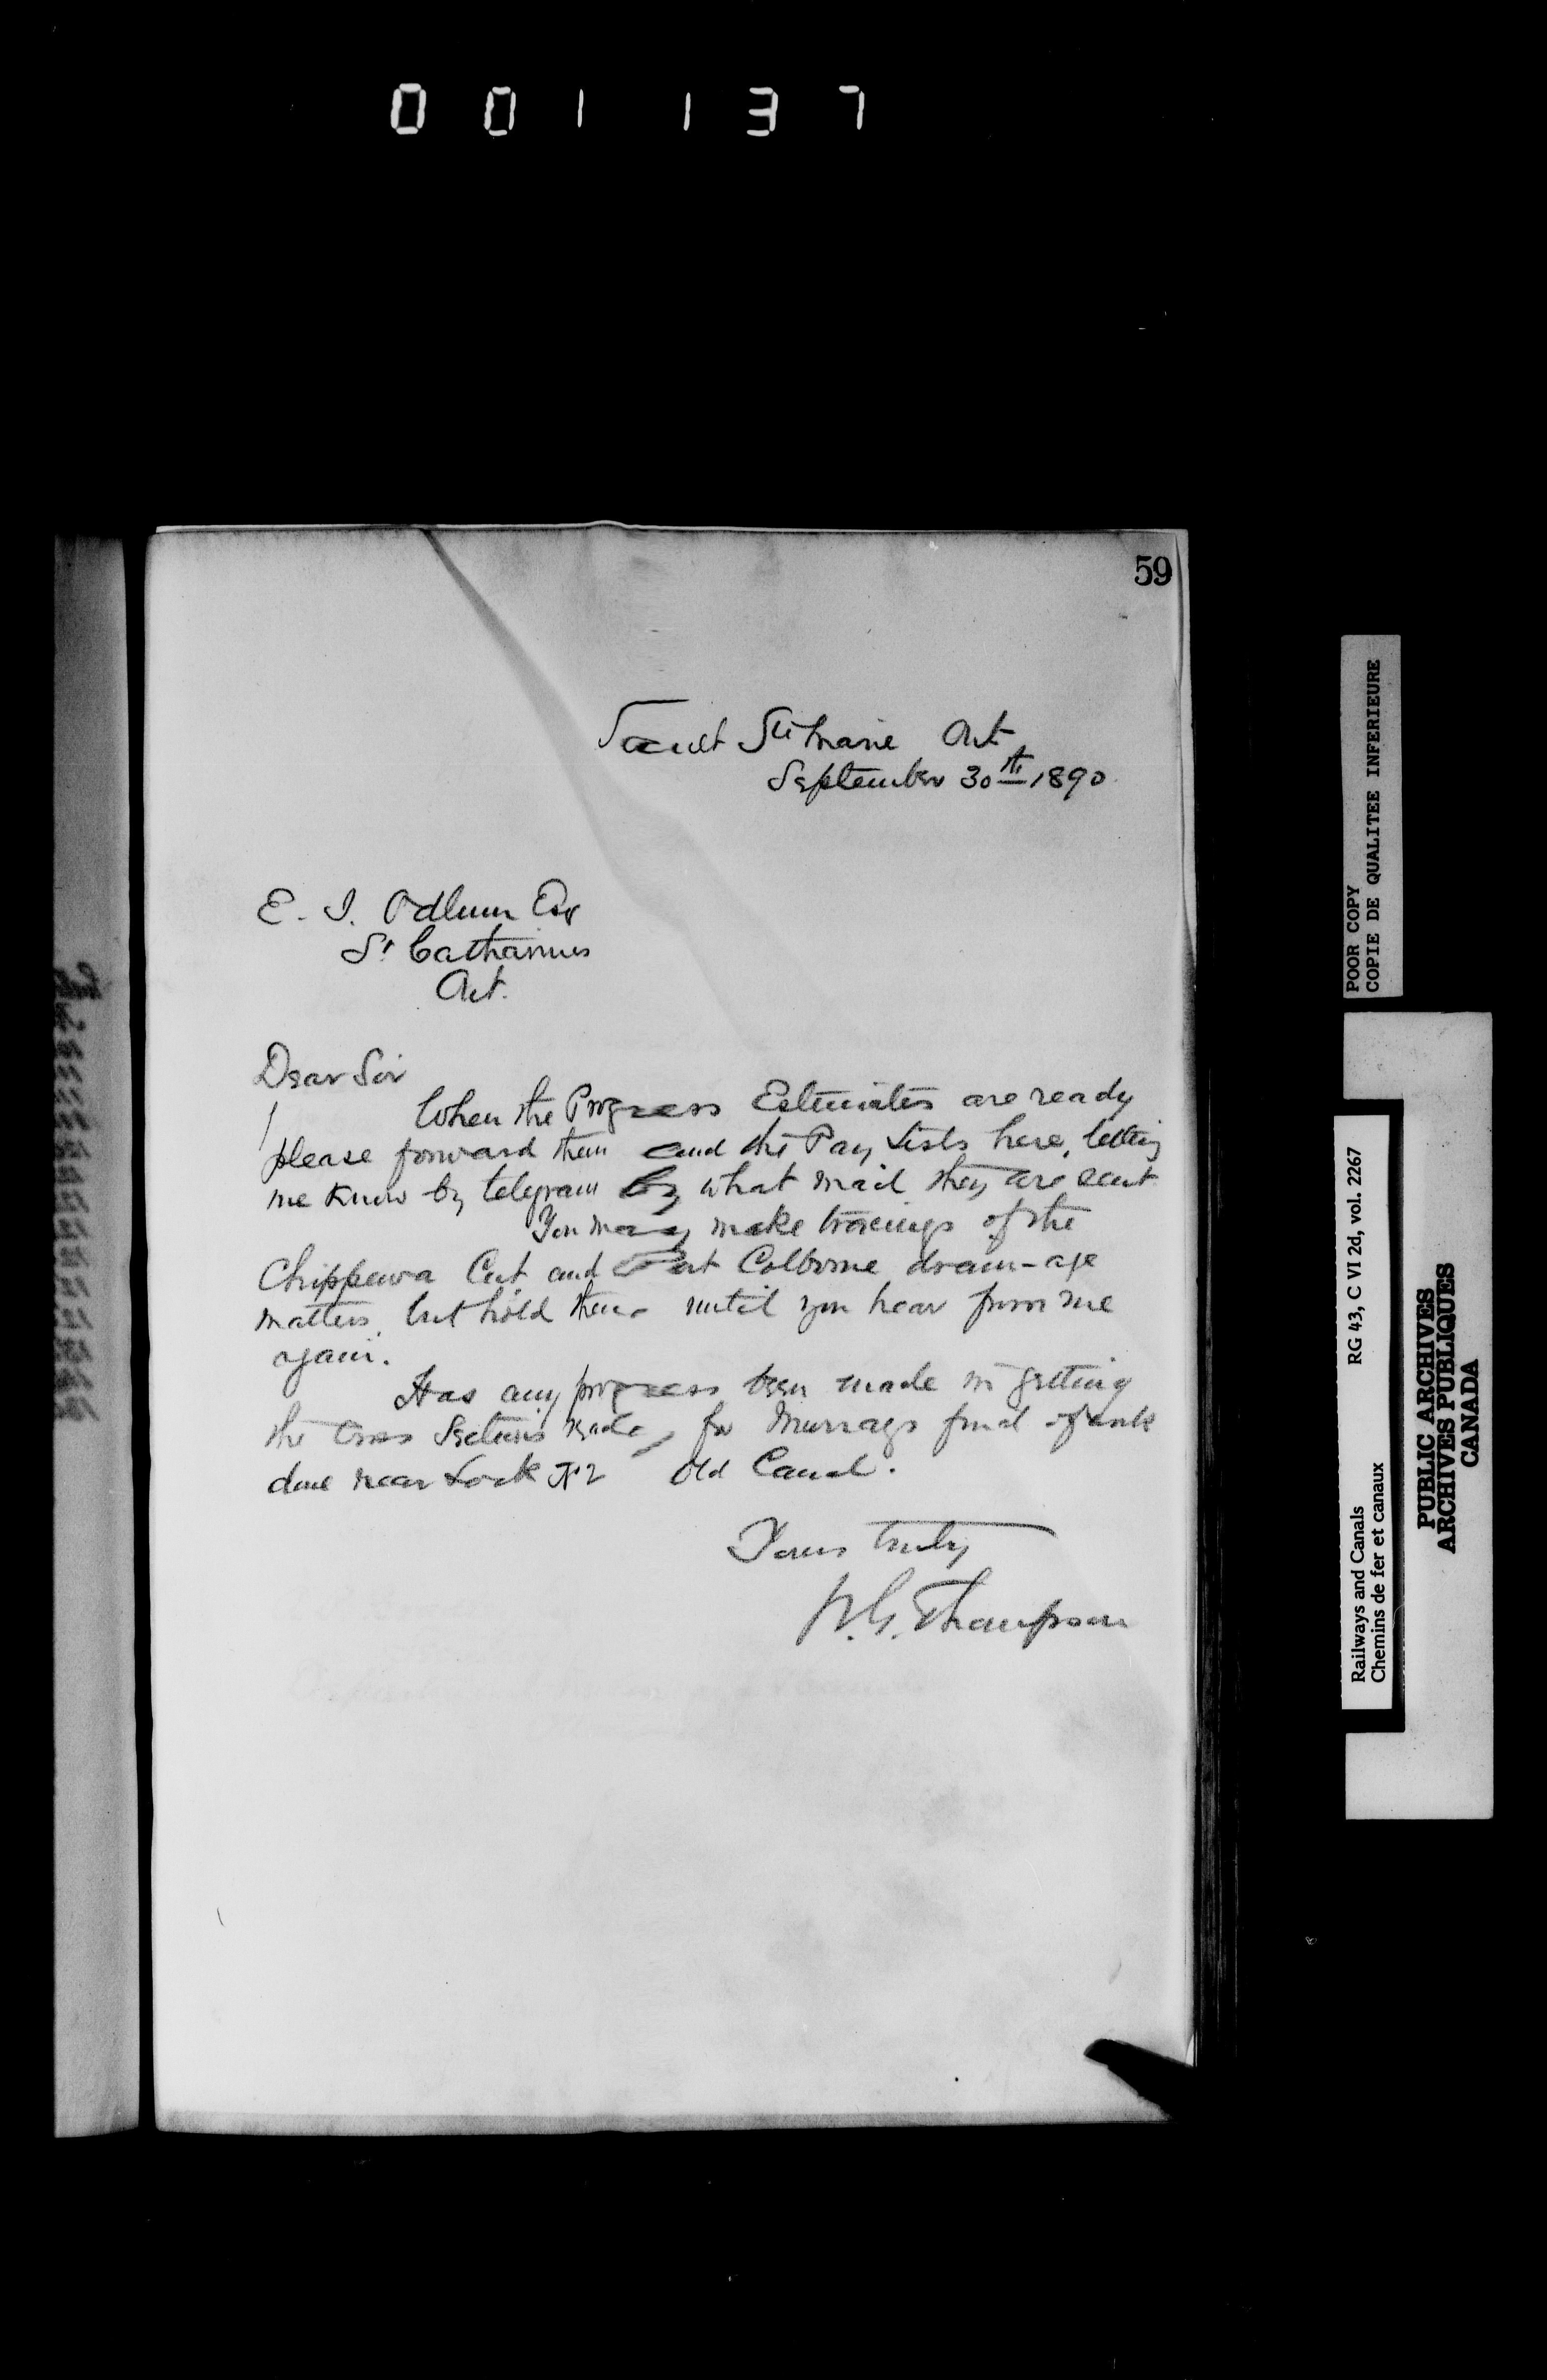 001137
59
Sault Ste Marie Ont
September 30th 1890
E. J. Odlum Esq
St Catharines
Ont.
Dear Sir
When the Progress Estimates are ready
please forward them and the Pay Lists here, letting
me know by telegram by what mail they are sent
You may make tracings of the
Chippewa Cut and Port Colborne drain-age
matters, but hold them until you hear from me
again.
Has any progress been made in getting
the Cross Sections made, for Murrays final of work
done near Lock No 2 Old Canal.
Yours truly
W. G. Thompson
POOR COPY
COPIE DE QUALITEE INFERIEURE
Railways and Canals RG 43, C VI 2d, vol. 2267
Chemins de fer et canaux
PUBLIC ARCHIVES
ARCHIVES PUBLIQUES
CANADA